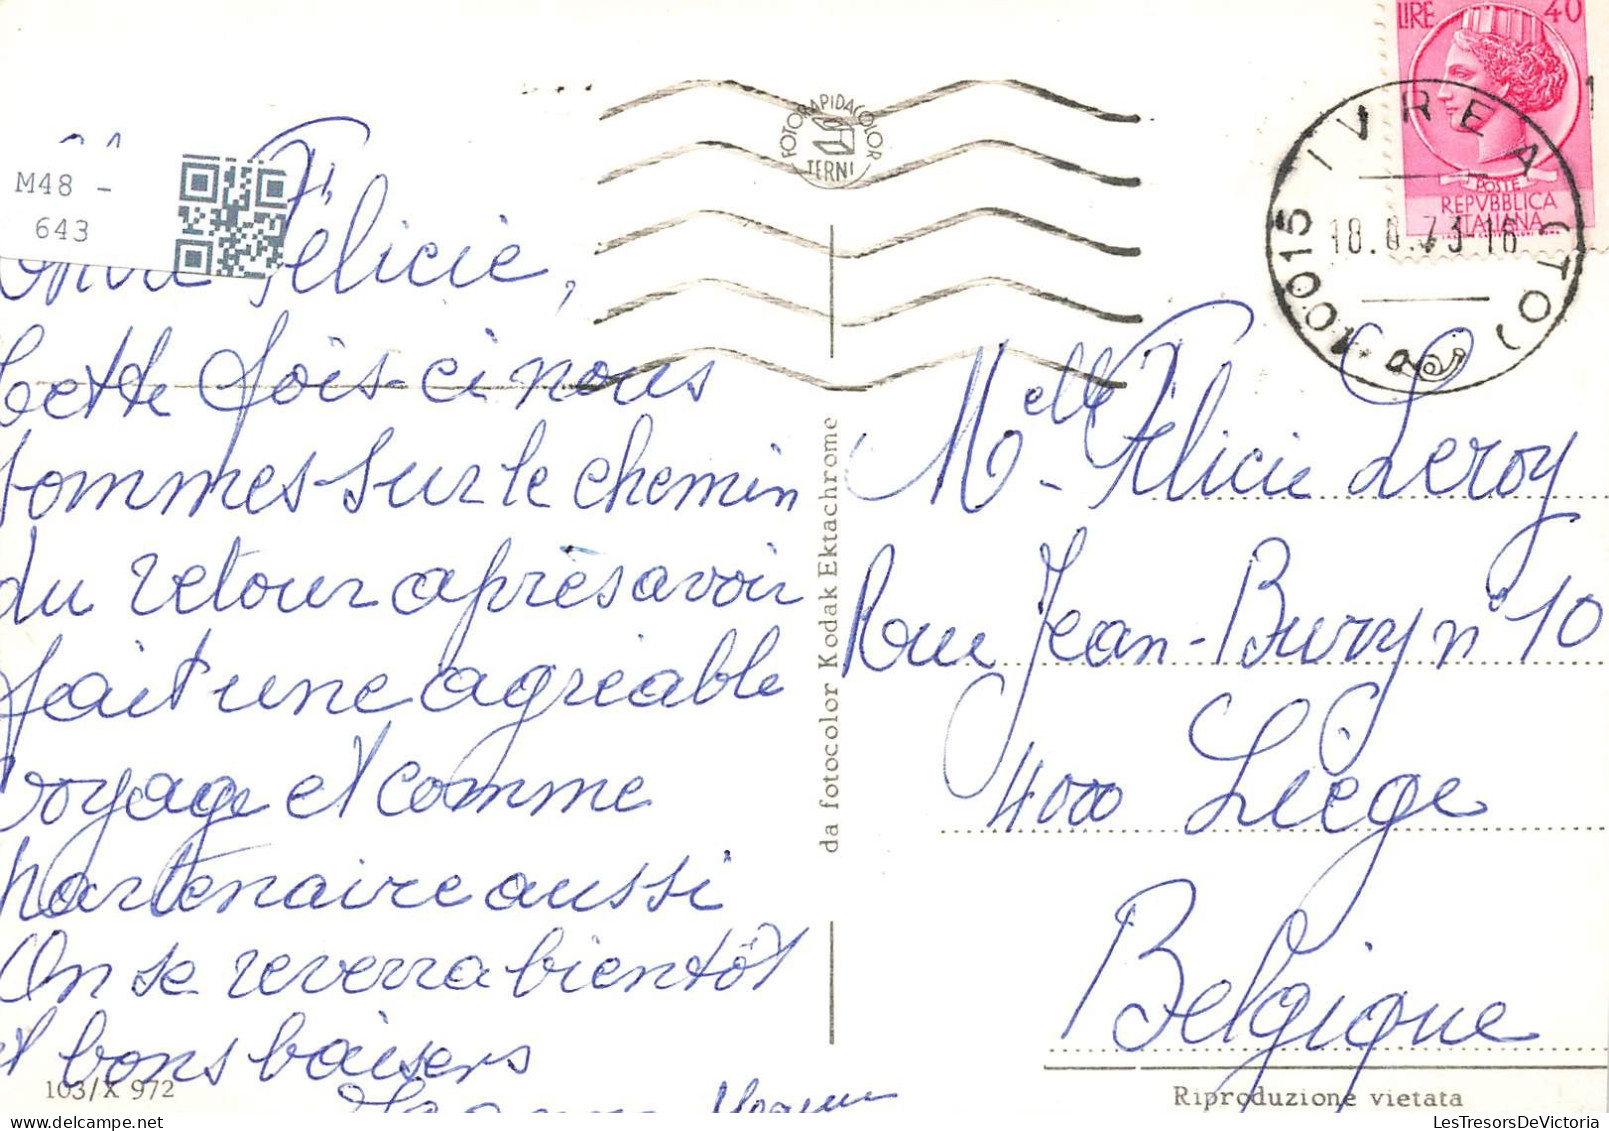 LIRE 40
POSTE
REPVBBLICA
ITALIANA
10015 IVREA (TO)
18.8.73-16
FOTORAPIDACOLOR
TERNI
M48 -
643
Félicie,
Cette fois-ci nous
sommes sur le chemin
du retour après avoir
fait une agréable
voyage et comme
partenaire aussi
On se reverra bientôt
et bons baisers
da fotocolor Kodak Ektachrome
Melle Félicie Leroy
Rue Jean-Bury n° 10
4000 Liège
Belgique
103/X 972
Riproduzione vietata
LesTresorsDeVictoria.com